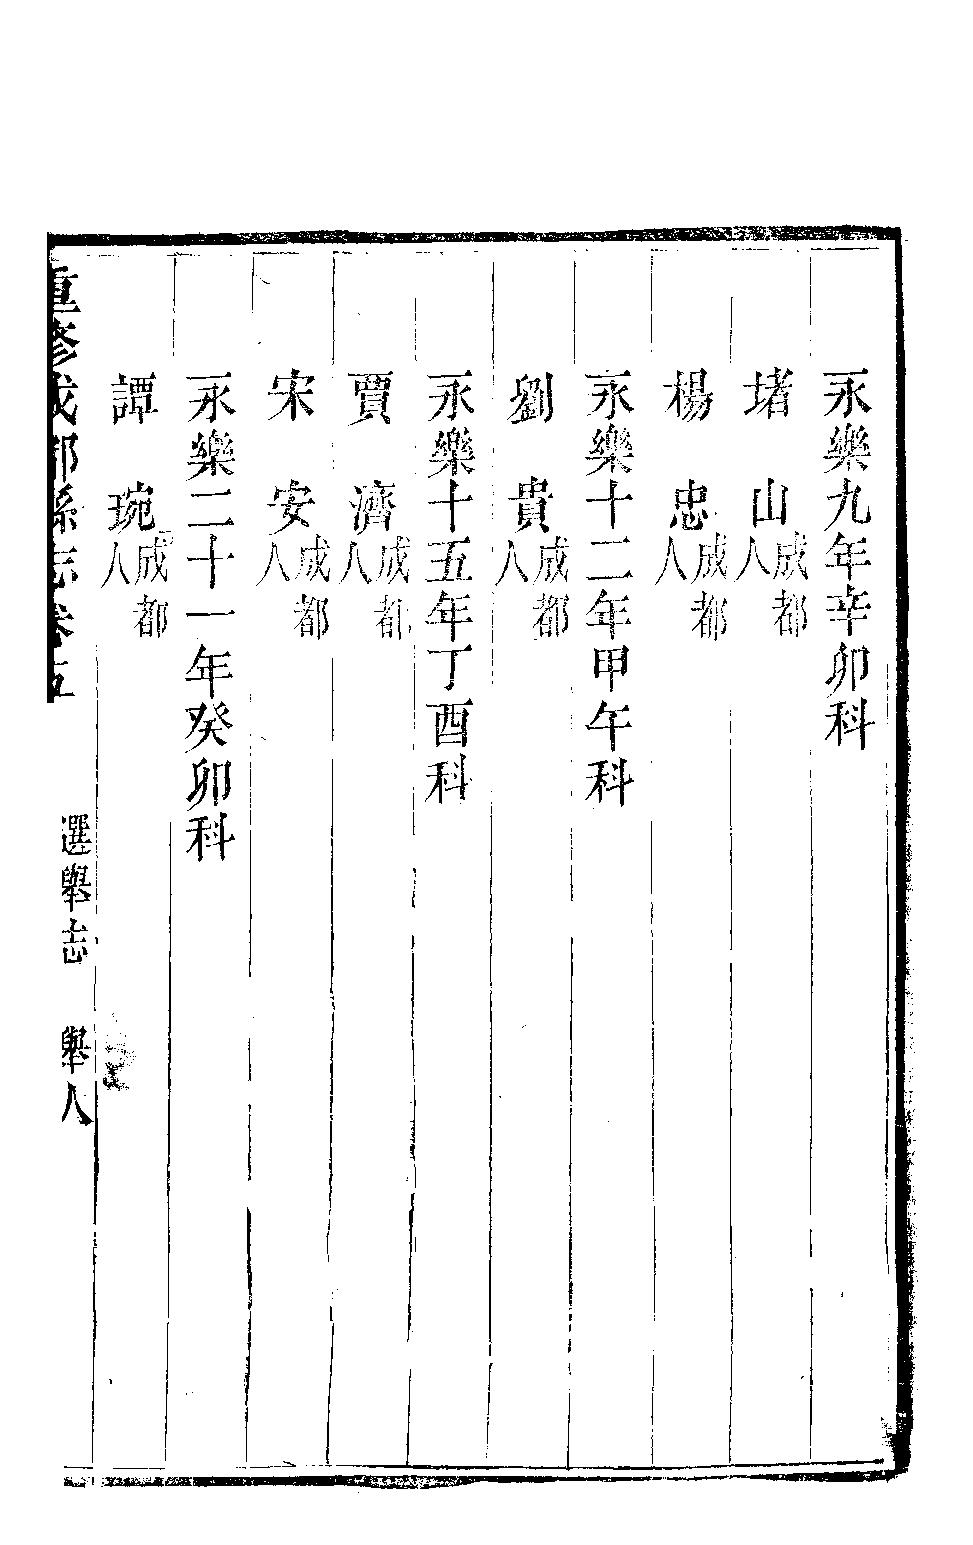 永樂九年辛卯科
堵　山成都人
楊　忠成都人
永樂十二年甲午科
劉　貴成都人
永樂十五年丁酉科
賈　濟成都人
宋　安成都人
永樂二十一年癸卯科
譚　琬成都人
重修成都縣志卷五　選舉志　舉人